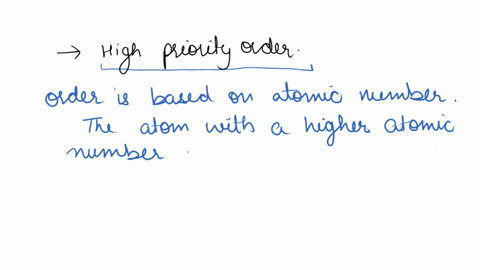 → High priority order.
order is based on atomic number.
The atom with a higher atomic
number